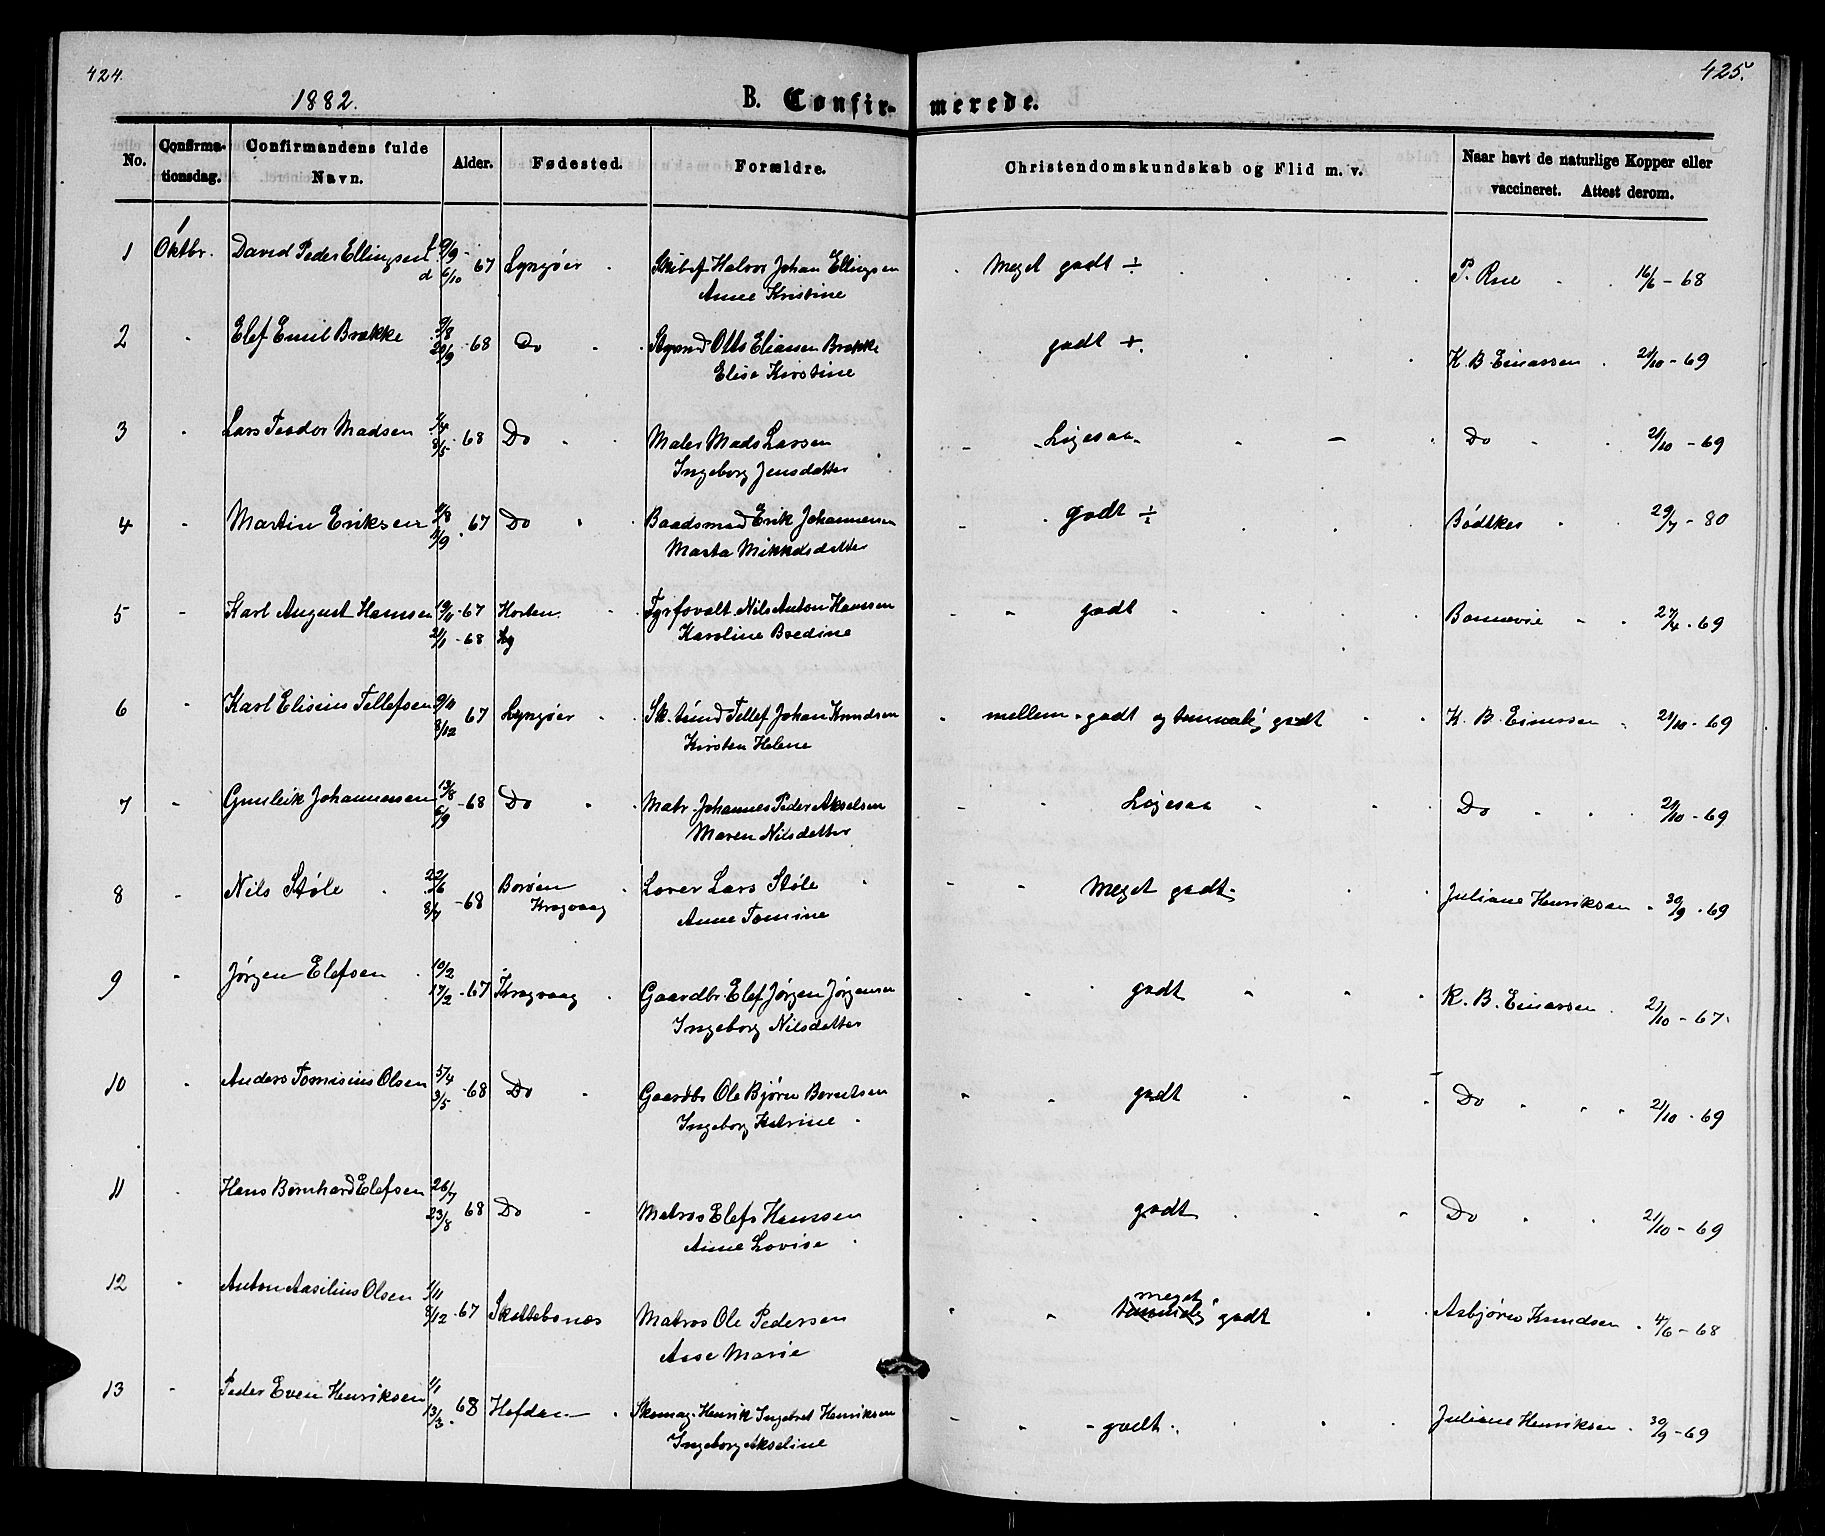 424.
425.
1882.
B. Confirmerede.
No.
Confirmationsdag.
Confirmandens fulde Navn.
Alder.
Fødested.
Forældre.
Christendomskundskab og Flid m. v.
Naar havt de naturlige Kopper eller vaccineret. Attest derom.
1 1 Oktbr. David Peder Ellingsen f 9/9 - 67 Lyngøer Halvor Johan Ellingsen Meget godt ÷ P. Rue 16/6 - 68
d 6/10 Anne Kristine
2 " Elef Emil Brække 9/8 - 68 Do Otto Eliassen Brække godt +. K. B. Einarsen 21/10 - 69
20/9 Elise Kirstine
3 " Lars Teodor Madsen 1/4 - 68 Do Maler Mads Larsen - Ligesaa - Do 21/10 - 69
8/5 Ingeborg Jensdatter
4 " Martin Eriksen - 67 Do Baadsmd Erik Johannesen godt ÷ Bødtker 29/7 - 80
/9 Marta Mikkelsdatter
5 " Karl August Hansen 19/11 - 67 Horten Nils Anton Hansen godt Bonnevie 27/4 - 69
21/1 - 68 Lg Karoline Bredine
6 " Karl Elisius Tellefsen 9/11 - 67 Lyngøer Tellef Johan Knudsen mellem godt og temmelig godt K. B. Einarsen 21/10 - 69
8/12 Kirsten Helene
7 " Gunleik Johannessen 13/8 - 68 Do Matr. Johannes Peder Akselsen Ligesaa Do 21/10 - 69
6/9 Maren Nilsdatter
8 " Nils Støle 22/6 - 68 Borøen Lars Støle Meget godt Juliane Henriksen 30/9 - 69
8/7 Kragvaag Anne Tomine
9 " Jørgen Elefsen 10/2 Kragvaag Gaardbr. Elef Jørgen Jørgensen godt K. B. Einarsen 21/10 - 67
17/2 - 67 Ingeborg Nilsdatter
10 " Anders Tomisius Olsen 5/4 - 68 Do Gaardbr Ole Bjørn Berntsen godt Do 21/10 - 69
3/5 Ingeborg Katrine
11 " Hans Bernhard Elefsen 26/7 68 Do Matros Elef Hanssen godt Do 21/10 - 69
23/8 Anne Lovise
12 " Anton Aasilius Olsen 1/11 - 67 Skottebonæs Matros Ole Pedersen meget temmelig godt Asbjørn Knudsen 4/6 - 68
8/12 Aase Marie
13 " Peder Even Henriksen 1/1 68 Skomag. Henrik Ingebret Henriksen - godt Juliane Henriksen 30/9 - 69
13/3 Ingeborg Akseline